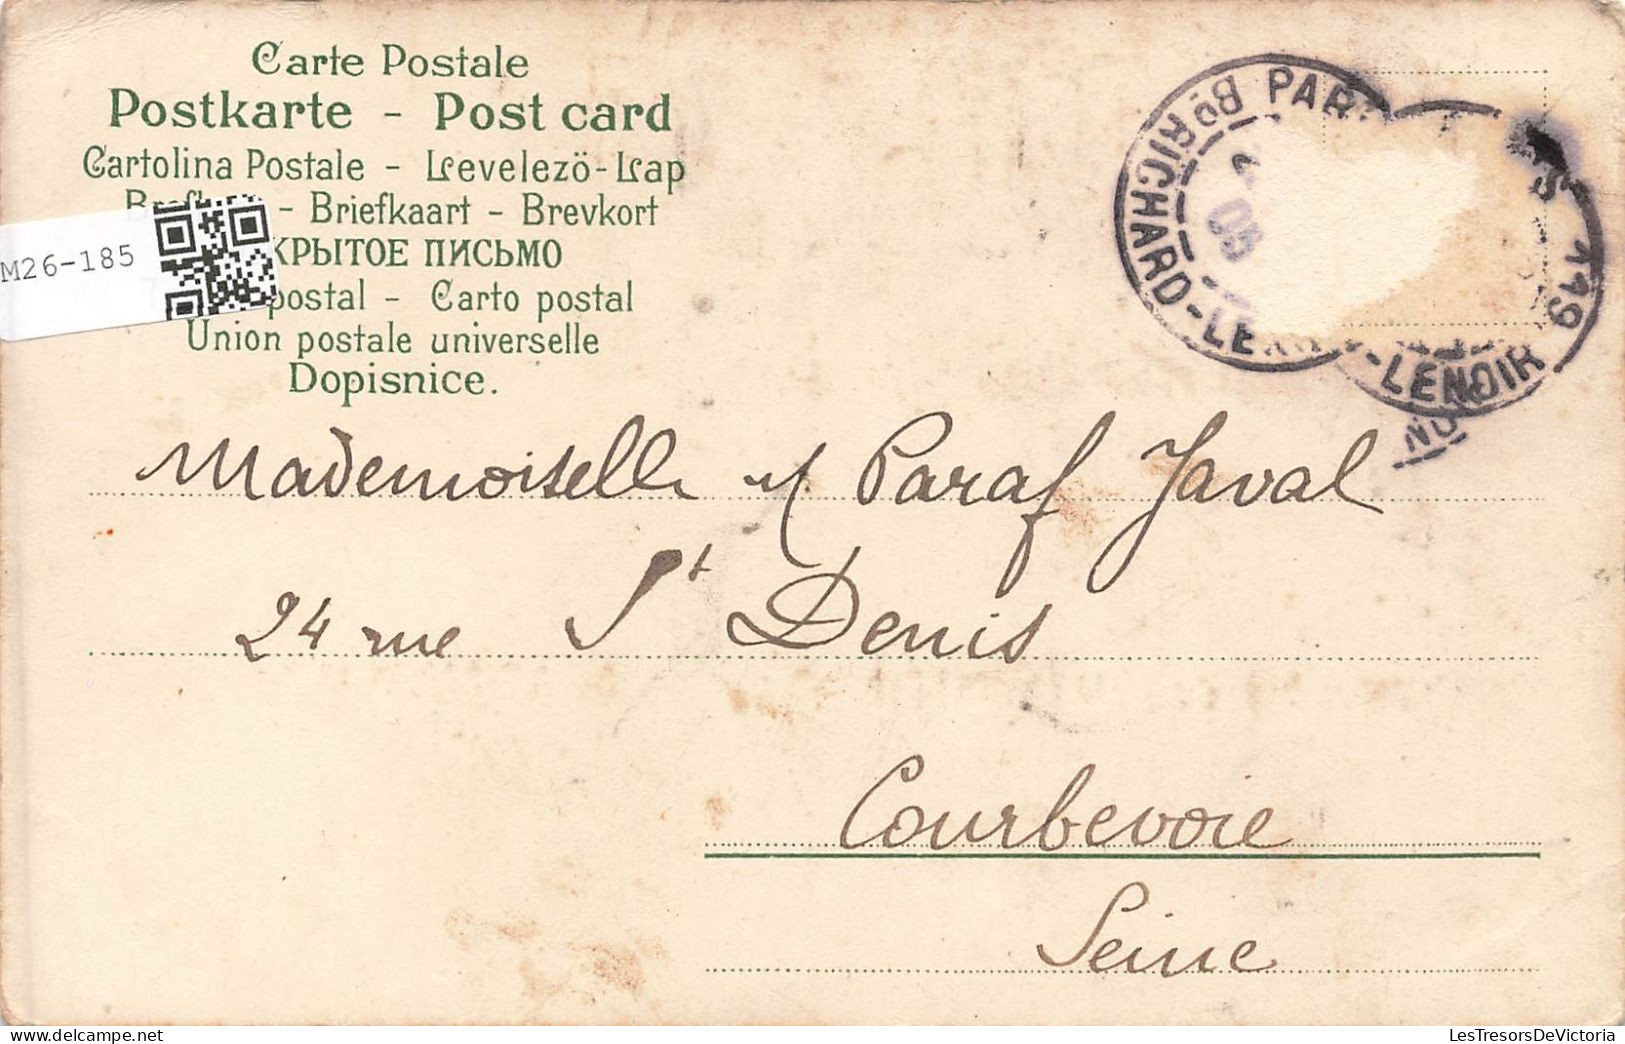 Carte Postale
Postkarte - Post card
Cartolina Postale - Levelező-Lap
- Briefkaart - Brevkort
КРЫТОЕ ПИСЬМО
postal - Carto postal
Union postale universelle
Dopisnice.
M26-185
PARIS 119
Bd RICHARD-LENOIR
05
119
-LENOIR
Mademoiselle M Paraf Javal
24 rue St Denis
Courbevoie
Seine
LesTresorsDeVictoria